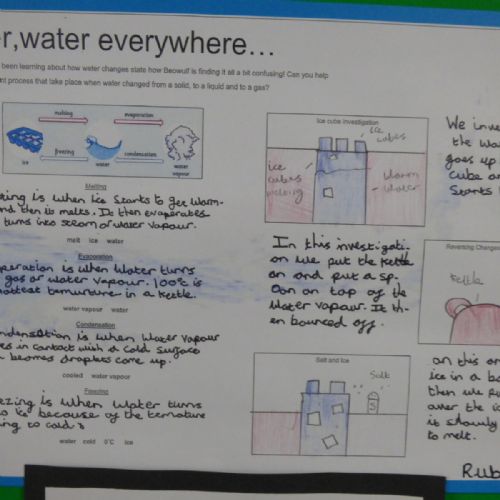 r,water everywhere...
been learning about how water changes state how Beowulf is finding it all a bit confusing! Can you help
nt process that take place when water changed from a solid, to a liquid and to a gas?
melting
evaporation
freezing
condensation
ice
water
water vapour
Melting
ing is when ice starts to get warm-
nd then it melts. It then evaporates
turns into steam or water vapour.
melt ice water
Evaporation
peration is when water turns
gas or water vapour. 100°c is
hottest temurture in a kettle.
water vapour water
Condensation
ndensation is when water vapour
es in contact with a cold surface
becomes droplets come up.
cooled water vapour
Freezing
ezing is when water turns
to ice because of the temature
ing to cold.
water cold 0°C ice
Ice cube investigation
ice cubes
ice cubes melting
warm water
In this investigati-
on we put the kettle
on and put a sp-
oon on top of the
water vapour. It th-
en bounced off.
Salt and Ice
Salt
S
We inve
the wa
goes up
cube an
starts
Reversing Changes
kettle
an this on
ice in a bo
then we pu
over the ic
it slowly
to melt.
Rub